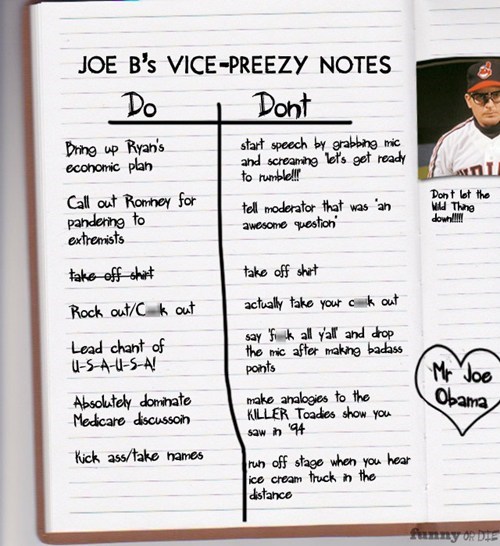 JOE B's VICE-PREEZY NOTES
Do
Dont
Bring up Ryan's
economic plan
start speech by grabbing mic
and screaming "let's get ready
to rumble!!!"
Call out Romney for
pandering to
extremists
tell moderator that was "an
awesome question"
take off shirt
take off shirt
Rock out/C k out
actually take your c k out
Lead chant of
U-S-A-U-S-A!
say "f k all y'all" and drop
the mic after making badass
points
Absolutely dominate
Medicare discussoin
make analogies to the
KILLER Toadies show you
saw in '94
Kick ass/take names
run off stage when you hear
ice cream truck in the
distance
Don't let the
Wild Thing
down!!!!!
Mr Joe
Obama
funny OR DIE